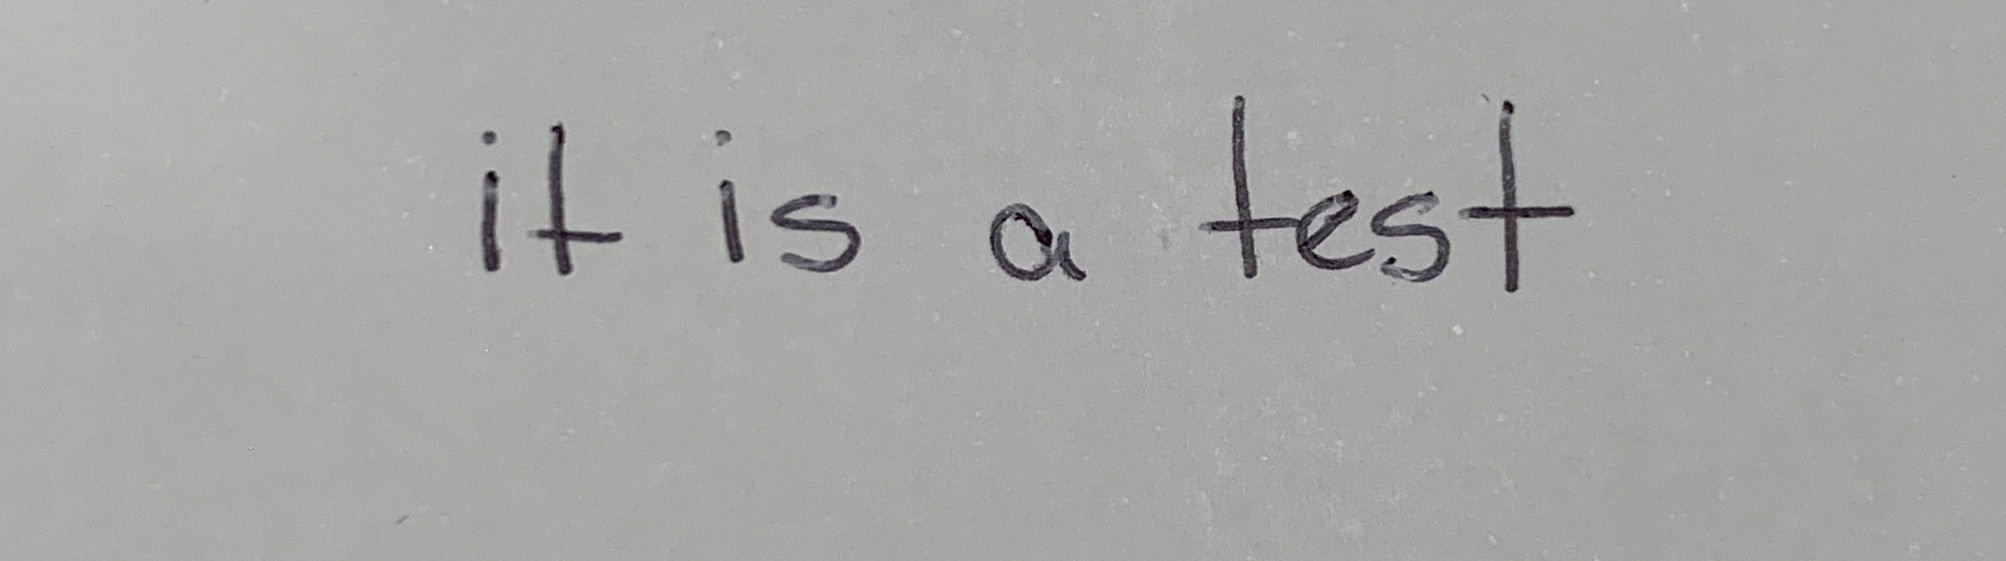 it is a test